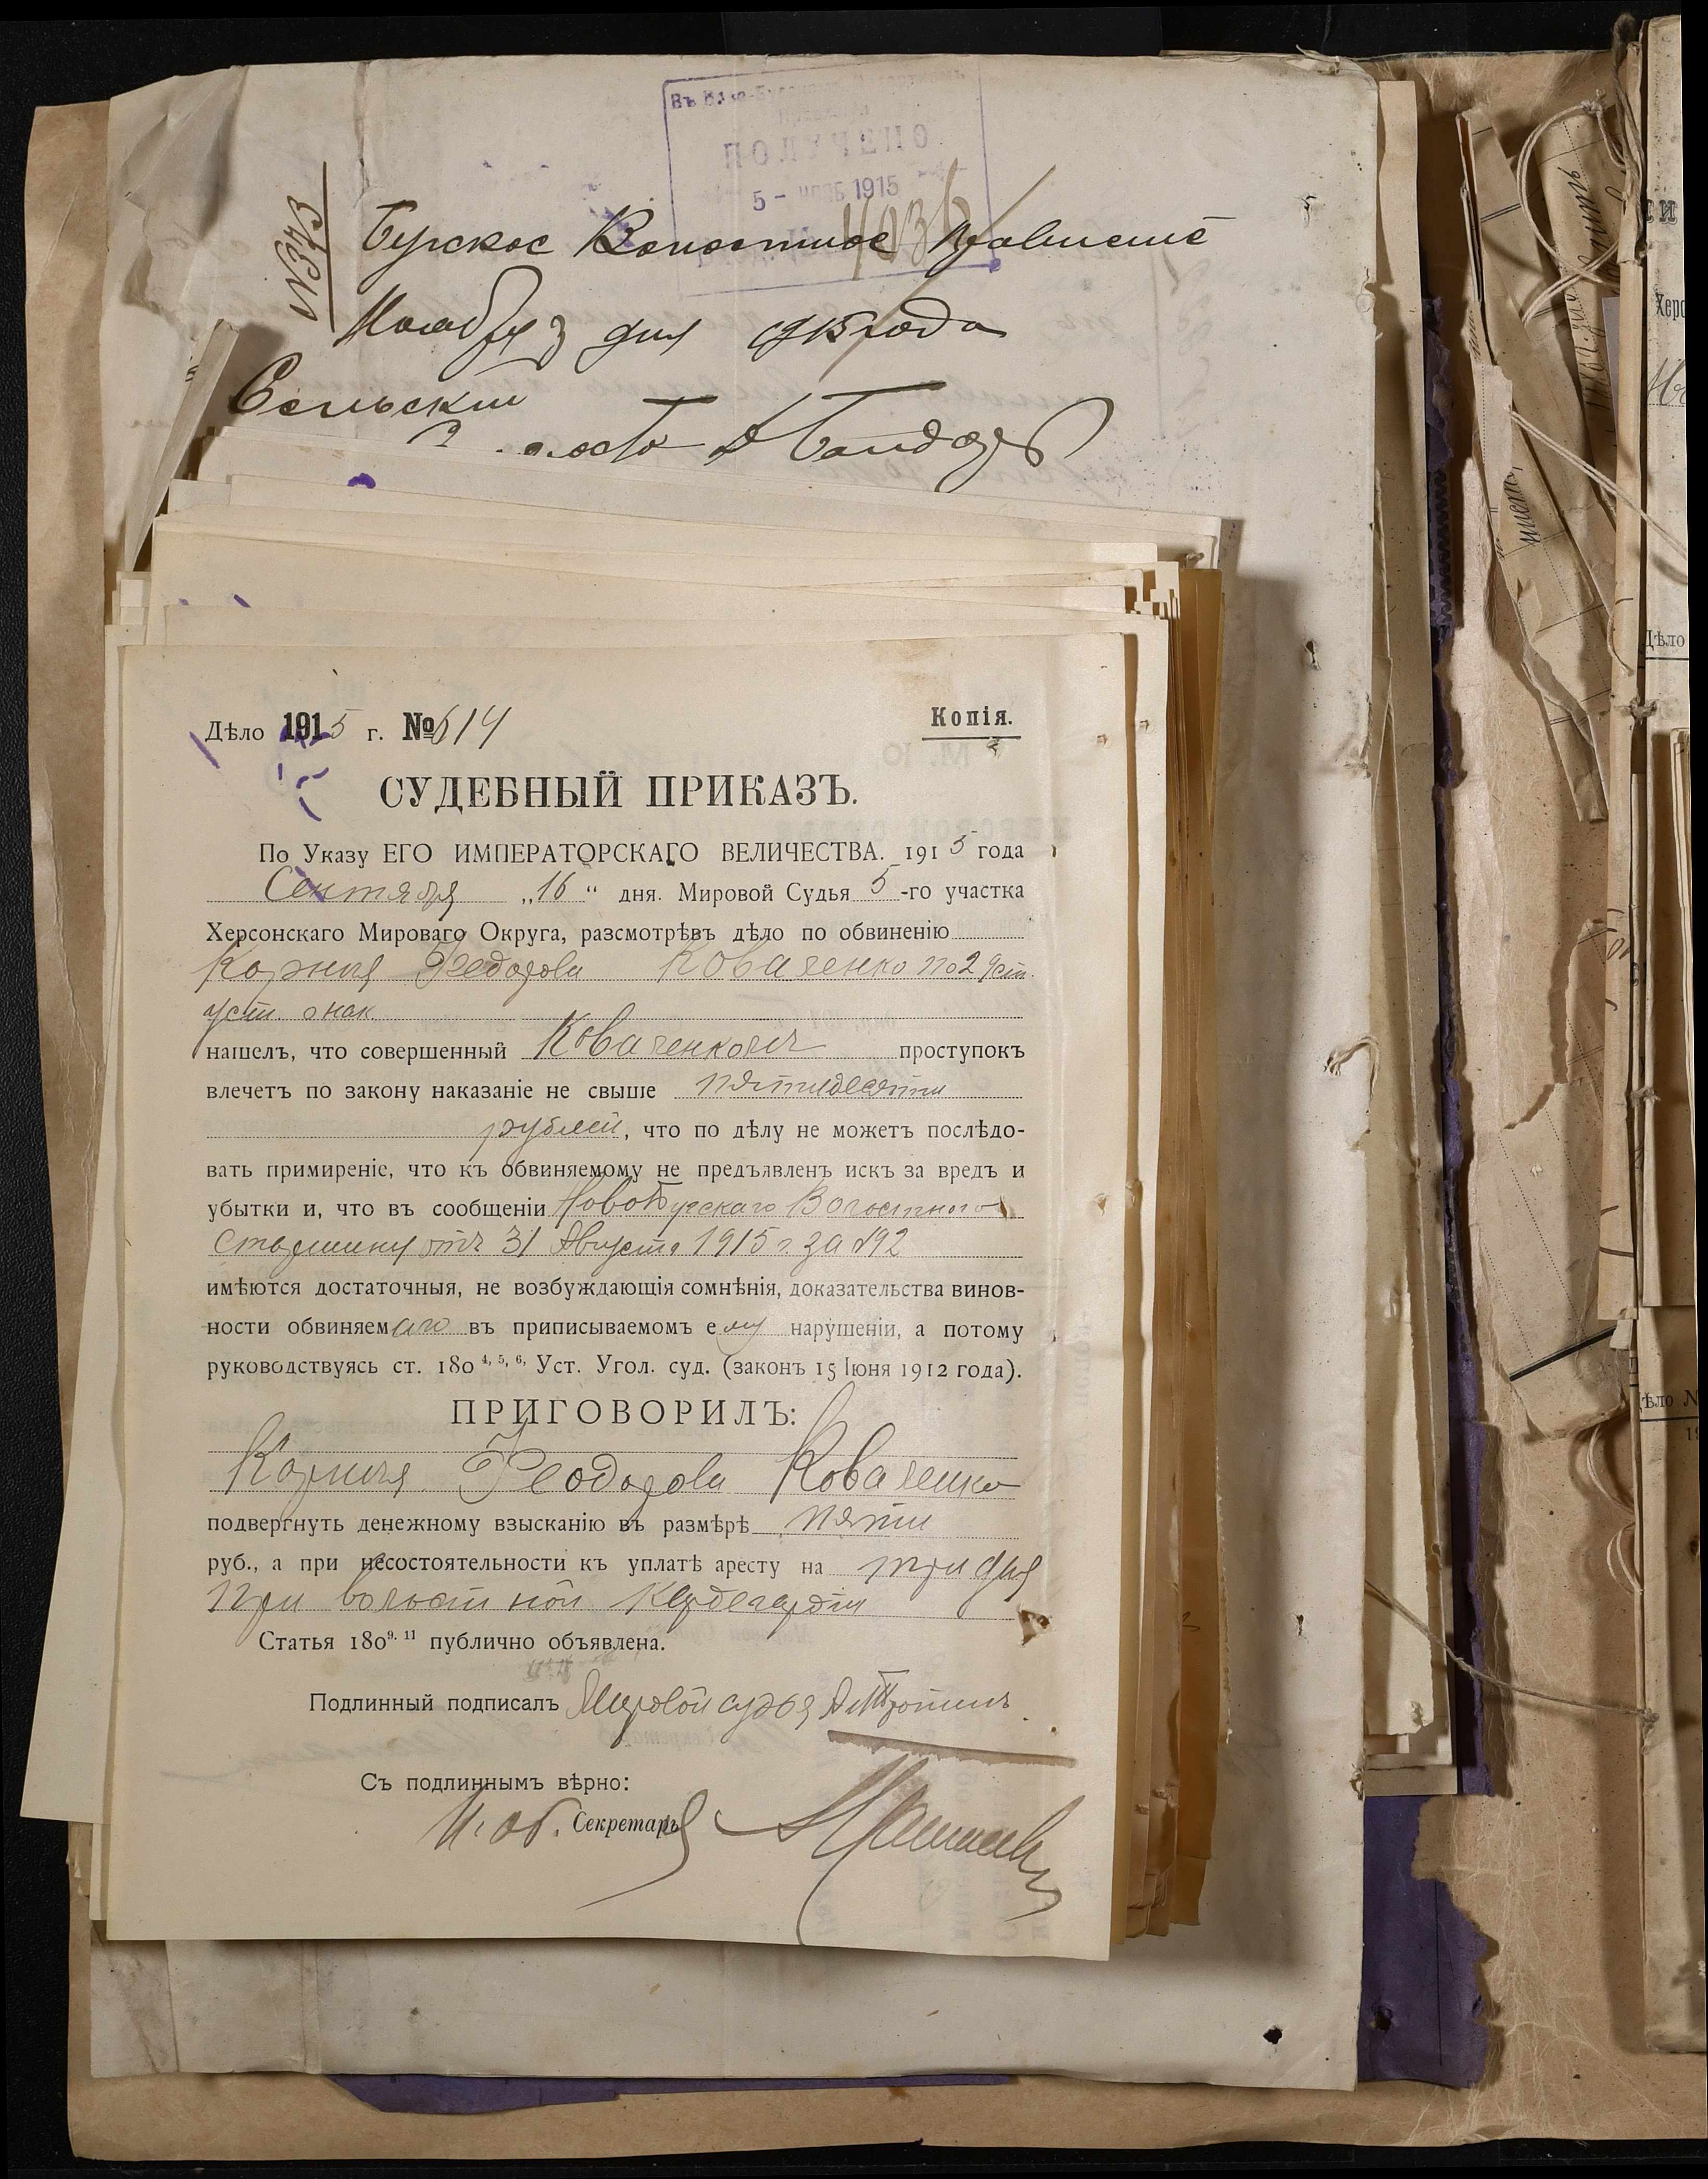 ПОЛУЧЕНО
5 - 1915
№373
Бурское Волостное Правление
Ноября 3 дня 1915 года
Сельский
Дѣло 1915 г. №614
Копія.
СУДЕБНЫЙ ПРИКАЗЪ.
По Указу ЕГО ИМПЕРАТОРСКАГО ВЕЛИЧЕСТВА. 1915 года
Сентября „16“ дня. Мировой Судья 5-го участка
Херсонскаго Мироваго Округа, разсмотрѣвъ дѣло по обвиненію
Корнія Федорова Коваленко по 2
уст. о нак.
нашелъ, что совершенный Коваленкомъ проступокъ
влечетъ по закону наказаніе не свыше пятидесяти
рублей, что по дѣлу не можетъ послѣдо-
вать примиреніе, что къ обвиняемому не предъявленъ искъ за вредъ и
убытки и, что въ сообщеніи Новобугскаго Волостного
Старшины отъ 31 Августа 1915 г. за №92
имѣются достаточныя, не возбуждающія сомнѣнія, доказательства винов-
ности обвиняемаго въ приписываемомъ ему нарушеніи, а потому
руководствуясь ст. 180 4, 5, 6, Уст. Угол. суд. (законъ 15 Іюня 1912 года).
ПРИГОВОРИЛЪ:
Корнія Феодорова Коваленко
подвергнуть денежному взысканію въ размѣрѣ пяти
руб., а при несостоятельности къ уплатѣ аресту на три дня
при волостной кордегардіи
Статья 180 9. 11 публично объявлена.
Подлинный подписалъ Мировой судья
Съ подлиннымъ вѣрно:
И. об. Секретаря
Херс
Дѣло
Дѣло №